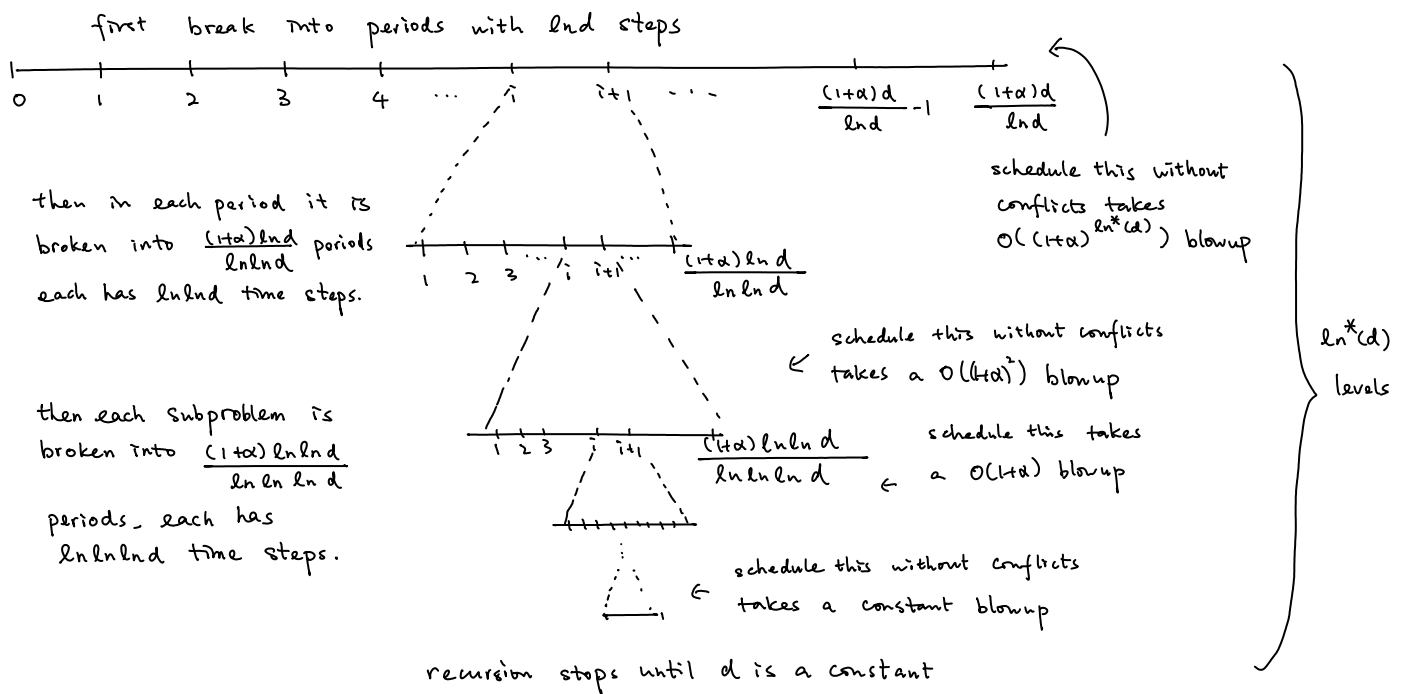 first break into periods with lnd steps
0 1 2 3 4 ... i i+1 ... (1+α)d/lnd -1 (1+α)d/lnd
schedule this without
conflicts takes
O((1+α)^ln*(d)) blowup
then in each period it is
broken into (1+α)lnd/lnlnd poriods
each has lnlnd time steps.
1 2 3 ... i i+1 ... (1+α)ln d/ln ln d
schedule this without conflicts
takes a O((1+α)²) blowup
ln*(d)
levels
then each subproblem is
broken into (1+α)lnlnd/ln ln ln d
periods, each has
lnlnlnd time steps.
1 2 3 i i+1 (1+α)lnln d/lnlnln d
schedule this takes
a O(1+α) blowup
schedule this without conflicts
takes a constant blowup
recursion stops until d is a constant